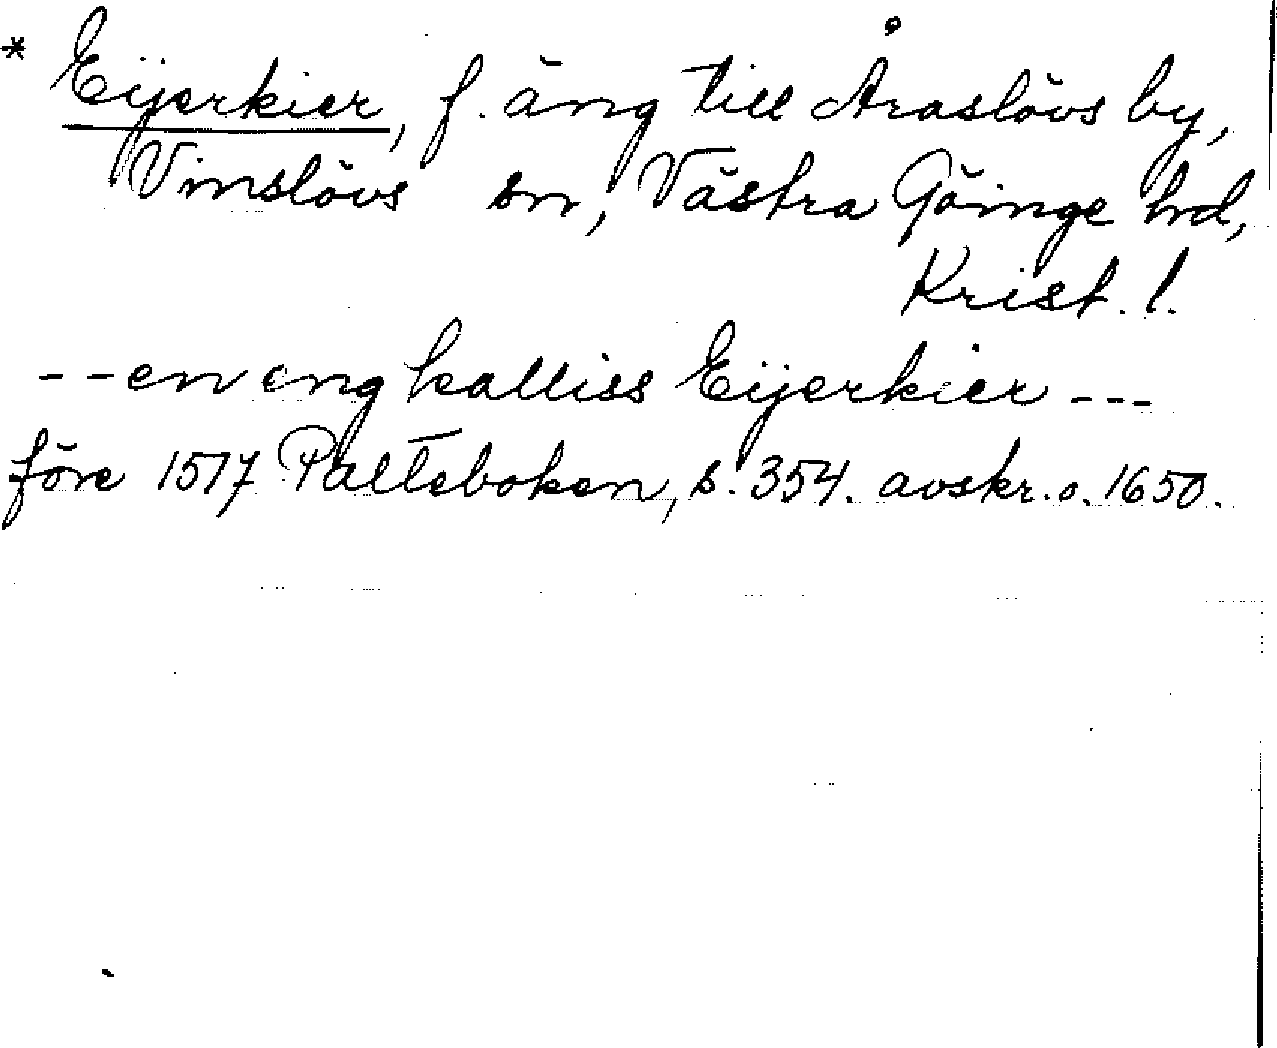 * Eijerkier, f. äng till Araslövs by,
Vinslövs sn, Västra Göinge hrd,
Krist. l.
-- en eng kalliss Eijerkier ---
före 1517 Palteboken, s. 354. avskr. o. 1650.